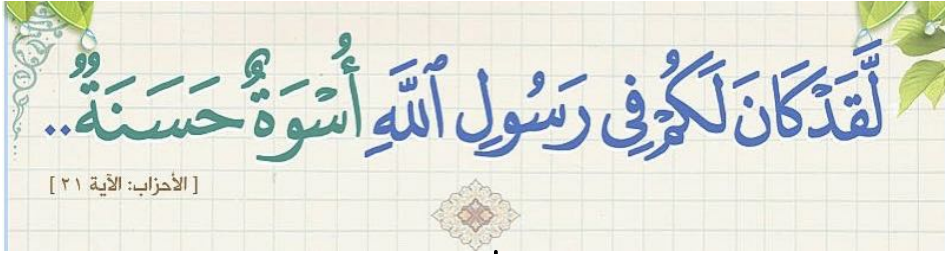 لَّقَدْ كَانَ لَكُمْ فِي رَسُولِ ٱللَّهِ أُسْوَةٌ حَسَنَةٌ..
[ الأحزاب: الآية ٢١ ]